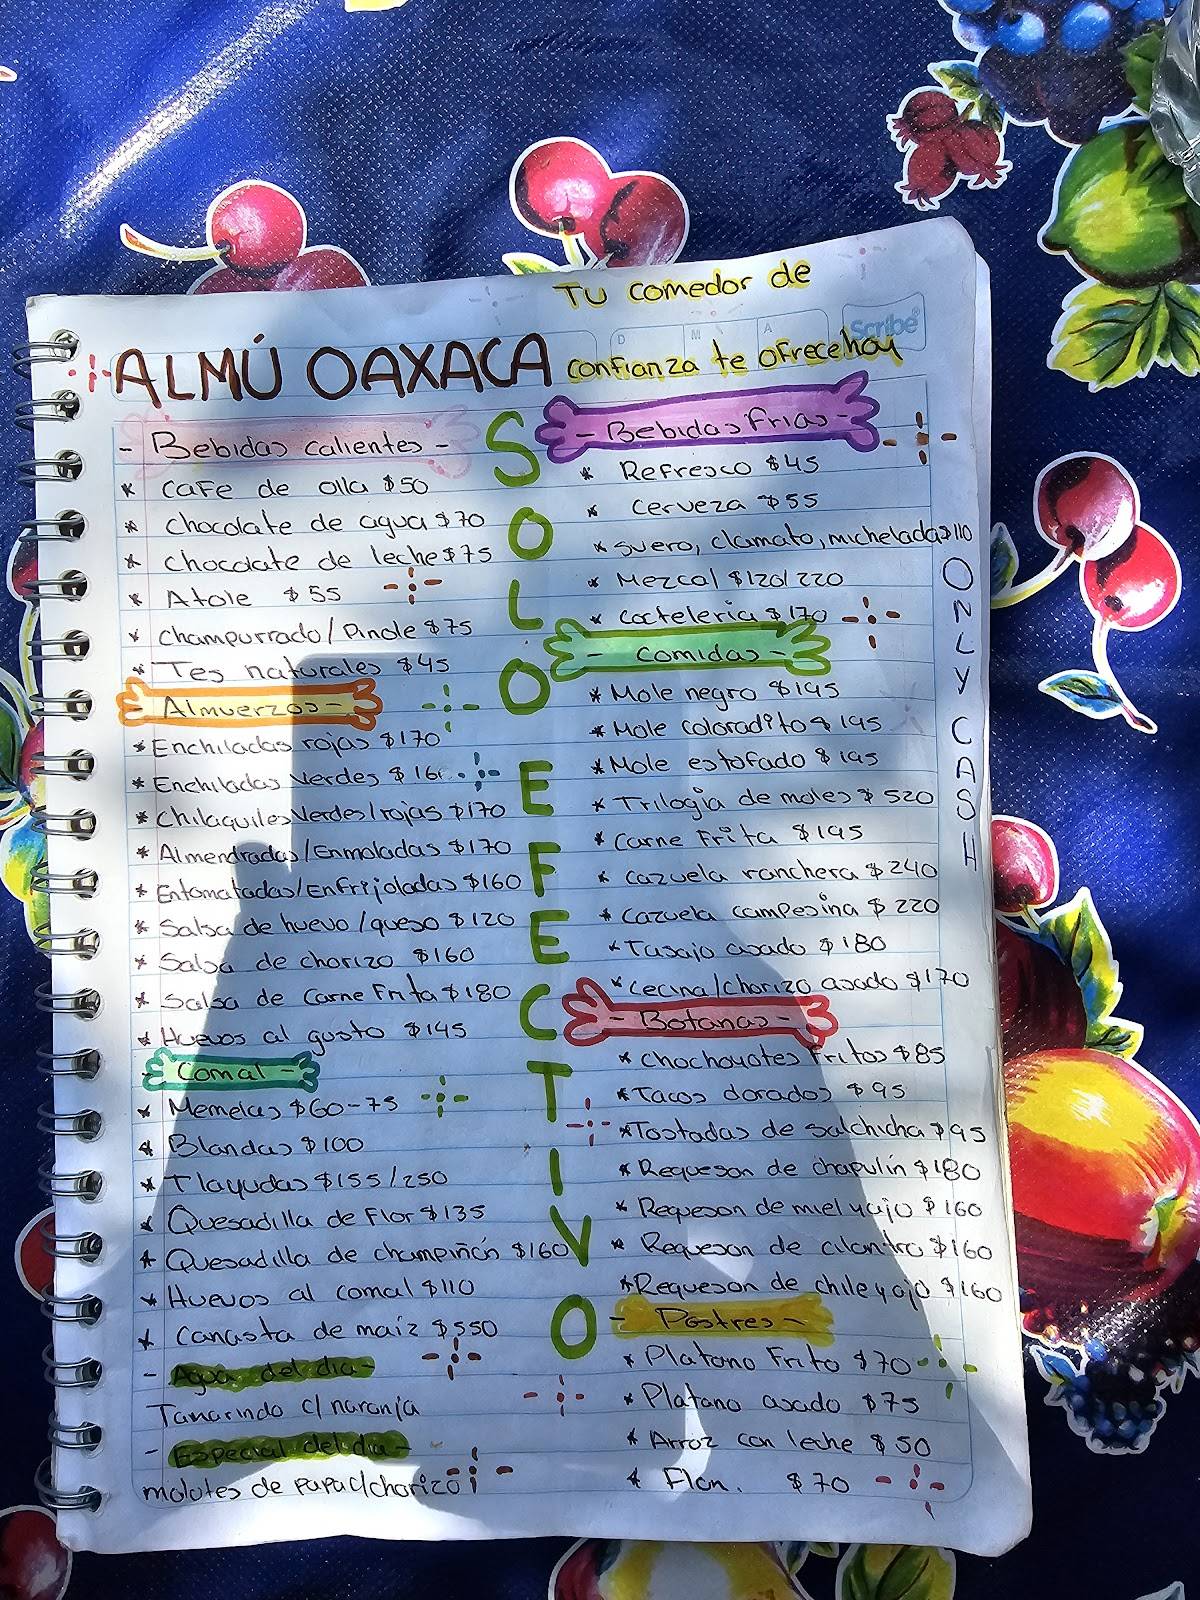 TU comedor de
confianza te ofrece hoy
Scribe
D M A
ALMÚ OAXACA
- Bebidas calientes -
* Cafe de olla $50
* Chocolate de agua $70
* Chocolate de leche $75
* Atole $55
* Champurrado/Pinole $75
* Tes naturales $45
- Almuerzos -
* Enchiladas rojas $170
* Enchiladas Verdes $
* Chilaquiles Verdes/rojas $170
* Almendradas/Enmoladas $170
* Entomatadas/Enfrijoladas $160
* Salsa de huevo/queso $120
* Salsa de chorizo $160
* Salsa de Carne Frita $180
* Huevos al gusto $145
- Comal -
* Memelas $60-75
* Blandas $100
* Tlayudas $155/250
* Quesadilla de Flor $135
* Quesadilla de champiñón $160
* Huevos al comal $110
* Canasta de maiz $550
- Agua del dia -
Tamarindo c/naranja
- Especial del dia -
molotes de papa c/chorizo
SOLO EFECTIVO
- Bebidas Frias -
* Refresco $45
* Cerveza $55
* Suero, clamato, micheladas $110
* Mezcal $120/220
* Cocteleria $170
- Comidas -
* Mole negro $195
* Mole coloradito $195
* Mole estofado $195
* Trilogia de moles $520
* Carne Frita $195
* Cazuela ranchera $240
* Cazuela campesina $220
* Tasajo asado $180
* Cecina/chorizo asado $170
- Botanas -
* Chochoyotes Fritos $85
* Tacos dorados $95
* Tostadas de salchicha $95
* Requeson de chapulín $180
* Requeson de miel y ajo $160
* Requeson de cilantro $160
* Requeson de chile y ajo $160
- Postres -
* Platano Frito $70
* Platano asado $75
* Arroz con leche $50
* Flan. $70
ONLY CASH